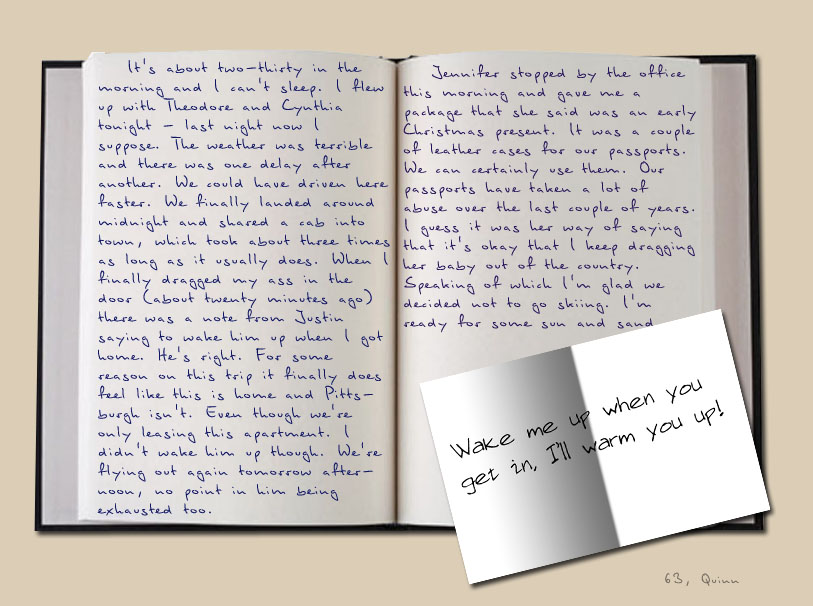 It's about two-thirty in the
morning and I can't sleep. I flew
up with Theodore and Cynthia
tonight – last night now I
suppose. The weather was terrible
and there was one delay after
another. We could have driven here
faster. We finally landed around
midnight and shared a cab into
town, which took about three times
as long as it usually does. When I
finally dragged my ass in the
door (about twenty minutes ago)
there was a note from Justin
saying to wake him up when I got
home. He's right. For some
reason on this trip it finally does
feel like this is home and Pitts-
burgh isn't. Even though we're
only leasing this apartment. I
didn't wake him up though. We're
flying out again tomorrow after-
noon, no point in him being
exhausted too.
Jennifer stopped by the office
this morning and gave me a
package that she said was an early
Christmas present. It was a couple
of leather cases for our passports.
We can certainly use them. Our
passports have taken a lot of
abuse over the last couple of years.
I guess it was her way of saying
that it's okay that I keep dragging
her baby out of the country.
Speaking of which I'm glad we
decided not to go skiing. I'm
ready for some sun and sand
Wake me up when you
get in, I'll warm you up!
63, Quinn